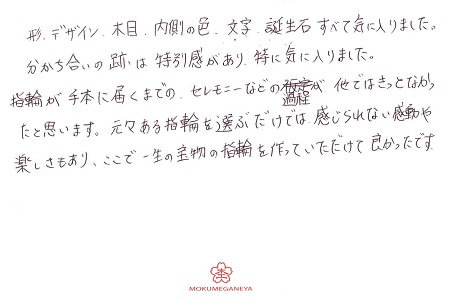 形、デザイン、木目、内側の色、文字、誕生石すべて気に入りました。
分かち合いの跡は特別感があり、特に気に入りました。
指輪が手本に届くまでの、セレモニーなどの過程が他ではきっとなかっ
たと思います。元々ある指輪を選ぶだけでは感じられない感動や
楽しさもあり、ここで一生の宝物の指輪を作っていただけて良かったです
MOKUMEGANEYA